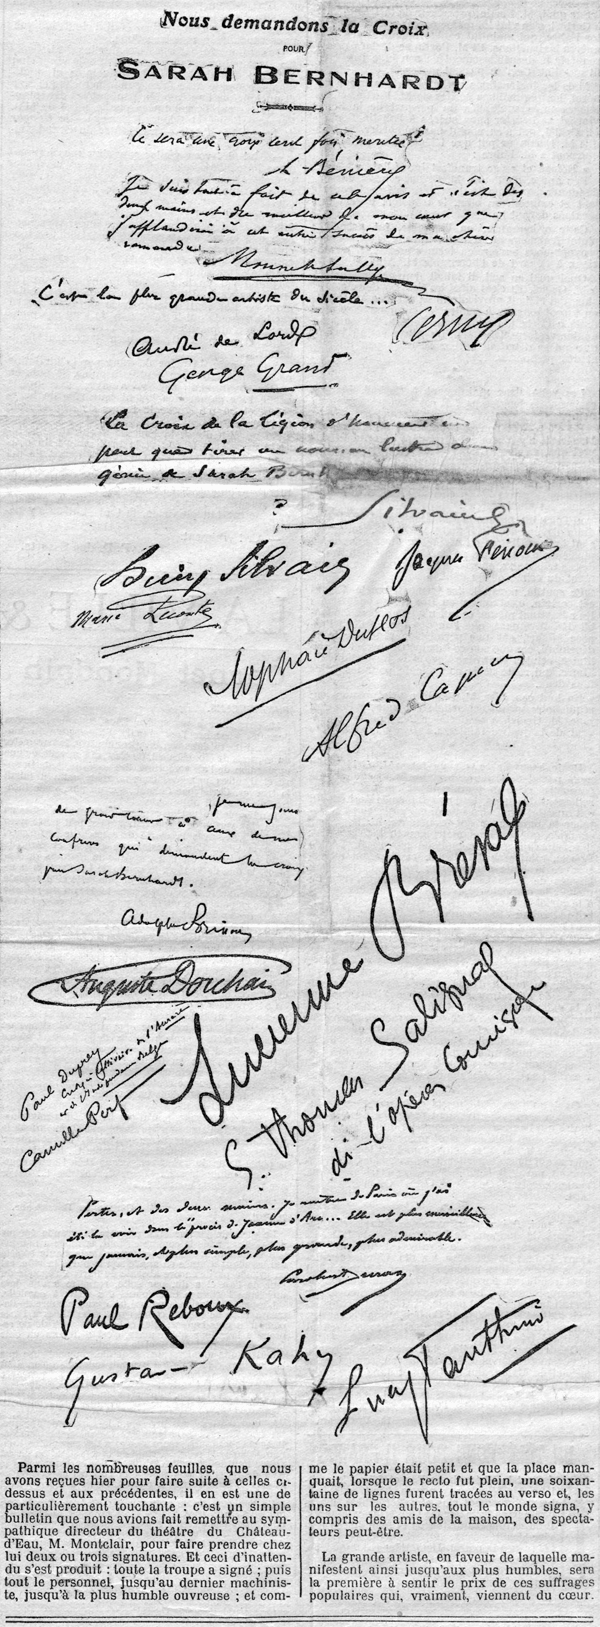 Nous demandons la Croix
POUR
SARAH BERNHARDT
Ce sera une croix cent fois méritée
Je suis tout à fait de cet avis et c'est des
deux mains et du meilleur de mon cœur que
j'applaudirai à cet autre succès de ma chère
camarade
Mounet Sully
C'est la plus grande artiste du siècle...
André de Lorde
George Grand
La Croix de la Légion d'honneur
peut que tirer un nouveau lustre du
génie de Sarah Bernh
?
Silvain
Louise Silvain
Jacques Fénoux
Marie Leconte
Raphaël Duflos
Alfred Capus
de grand cœur à
confrères qui demandent la croix
pour Sarah Bernhardt.
Adolphe Brisson
Auguste Dorchain
Lucienne Bréval
Paul Duprey
critique de l'Aurore
et de l'Indépendance belge
Camille Port
S. Thomas Salignac
de l'opéra comique
Certes, et des deux mains. Je rentre de Paris où j'ai
été la voir dans le procès de Jeanne d'Arc... Elle est plus
que jamais, et plus simple, plus grande, plus admirable.
Paul Reboux
Gustave Kahn
Parmi les nombreuses feuilles, que nous
avons reçues hier pour faire suite à celles ci-
dessus et aux précédentes, il en est une de
particulièrement touchante : c'est un simple
bulletin que nous avions fait remettre au sym-
pathique directeur du théâtre du Château-
d'Eau, M. Montclair, pour faire prendre chez
lui deux ou trois signatures. Et ceci d'inatten-
du s'est produit : toute la troupe a signé ; puis
tout le personnel, jusqu'au dernier machinis-
te, jusqu'à la plus humble ouvreuse ; et com-
me le papier était petit et que la place man-
quait, lorsque le recto fut plein, une soixan-
taine de lignes furent tracées au verso et, les
uns sur les autres, tout le monde signa, y
compris des amis de la maison, des specta-
teurs peut-être.
La grande artiste, en faveur de laquelle ma-
nifestent ainsi jusqu'aux plus humbles, sera
la première à sentir le prix de ces suffrages
populaires qui, vraiment, viennent du cœur.